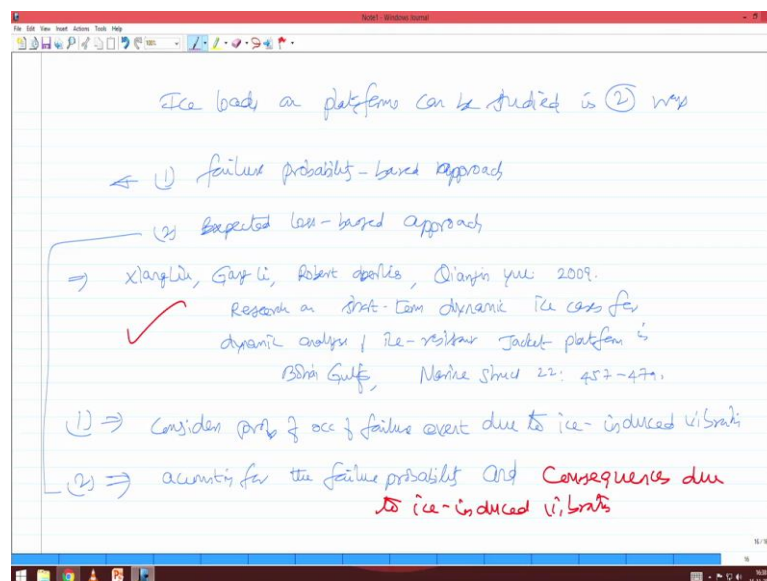 Note1 - Windows Journal
File Edit View Insert Actions Tools Help
Ice loads on platforms can be studied in 2 ways
(1) failure probability-based approach
(2) Expected loss-based approach
⇒ Xiang Liu, Gang Li, Robert, Qianjin Yue 2009.
Research on short-term dynamic ice cases for
dynamic analysis ice-resistant Jacket platform in
Bohai Gulf, Marine Struct 22: 457-479.
(1) ⇒ Consider prob of occ of failure event due to ice-induced vibrations
(2) ⇒ accounts for the failure probability and Consequences due
to ice-induced vibrations